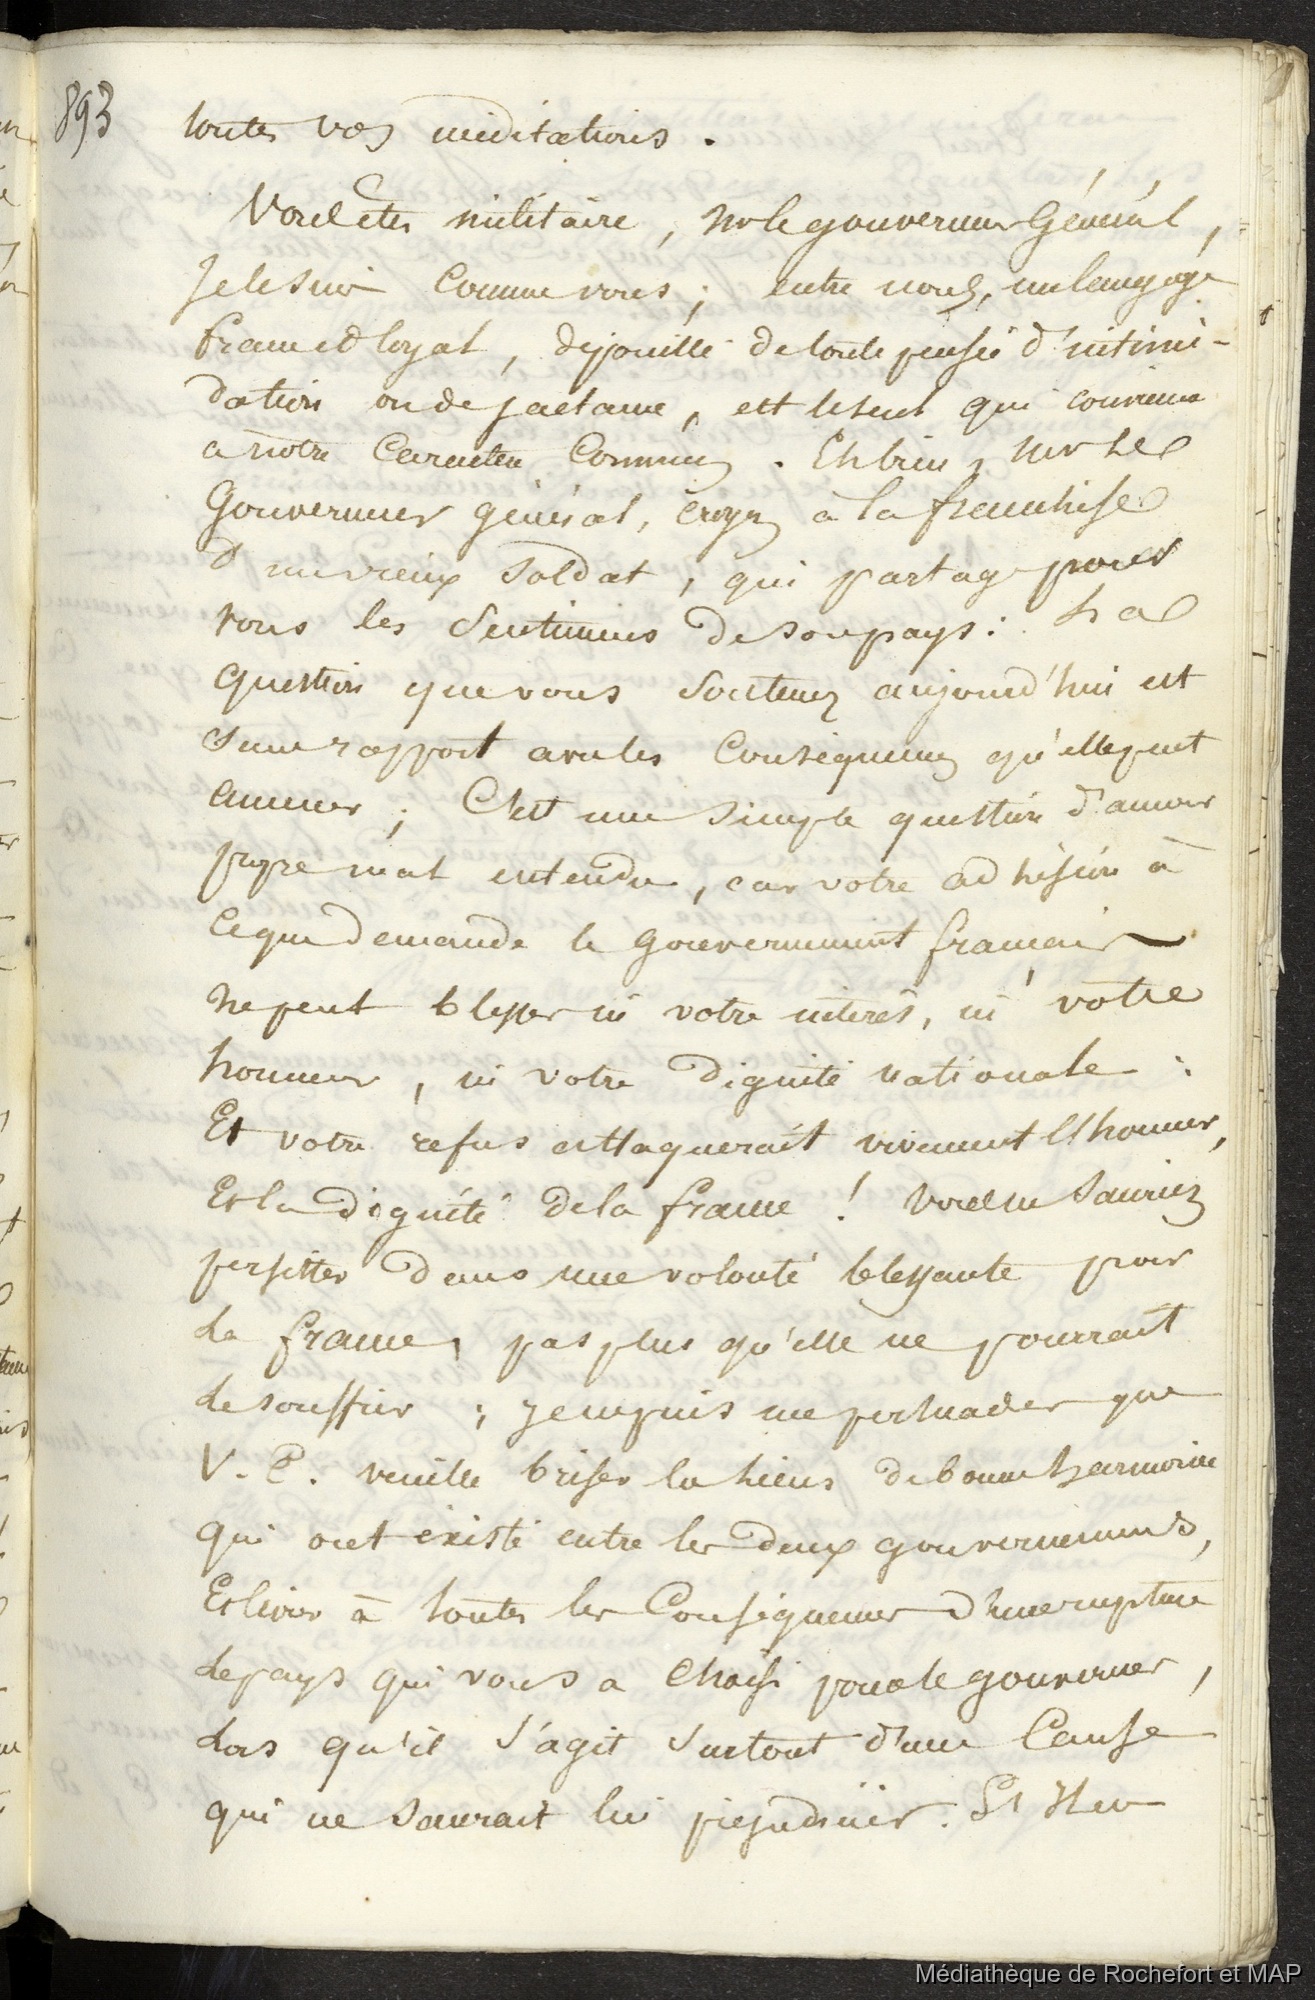 893
toutes vos méditations.
Vous êtes militaire, Mr le gouverneur Général,
Je le suis comme vous ; entre nous, un langage
franc et loyal, dépouillé de toute pensée d'intimi-
dation ou de jactance, est le seul qui convienne
a notre Caractère Commun. Eh bien, Mr Le
Gouverneur général, croyez à la franchise
d'un vieux Soldat, qui partage pour
vous les Sentimens de son pays : La
question que vous Soutenez aujourd'hui est
Sans rapport avec les Conséquences qu'elle peut
amener ; C'est une Simple question d'amour
propre mal entendu, car votre adhésion à
Ce que demande le Gouvernement français
ne peut blesser ni votre intérês, ni votre
honneur, ni votre dignité nationale :
Et votre refus attaquerait vivement l'honneur,
Et la dignité de la france ! Vous ne Sauriez
persister dans une volonté blessante pour
La france, pas plus qu'elle ne pourrait
le souffrir ; Je ne puis me persuader que
V. E. veuille briser les liens de bonne harmonie
qui ont existé entre les deux gouvernemens,
Et livrer à toutes les Conséquences d'une rupture
Le pays qui vous a choisi pour le gouverner,
Lors qu'il S'agit Surtout d'une Cause
qui ne Saurait lui préjudicier. Et Mr